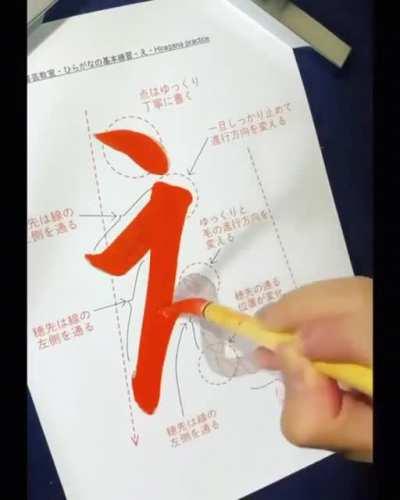 芸教室・ひらがなの基本練習・え・Hiragana practice
点はゆっくり
丁寧に書く
一旦しっかり止めて
進行方向を変える
ゆっくりと
毛の進行方向を
変える
穂先は線の
左側を通る
穂先の通る
位置が変化
穂先は線の
左側を通る
穂先は線の
左側を通る